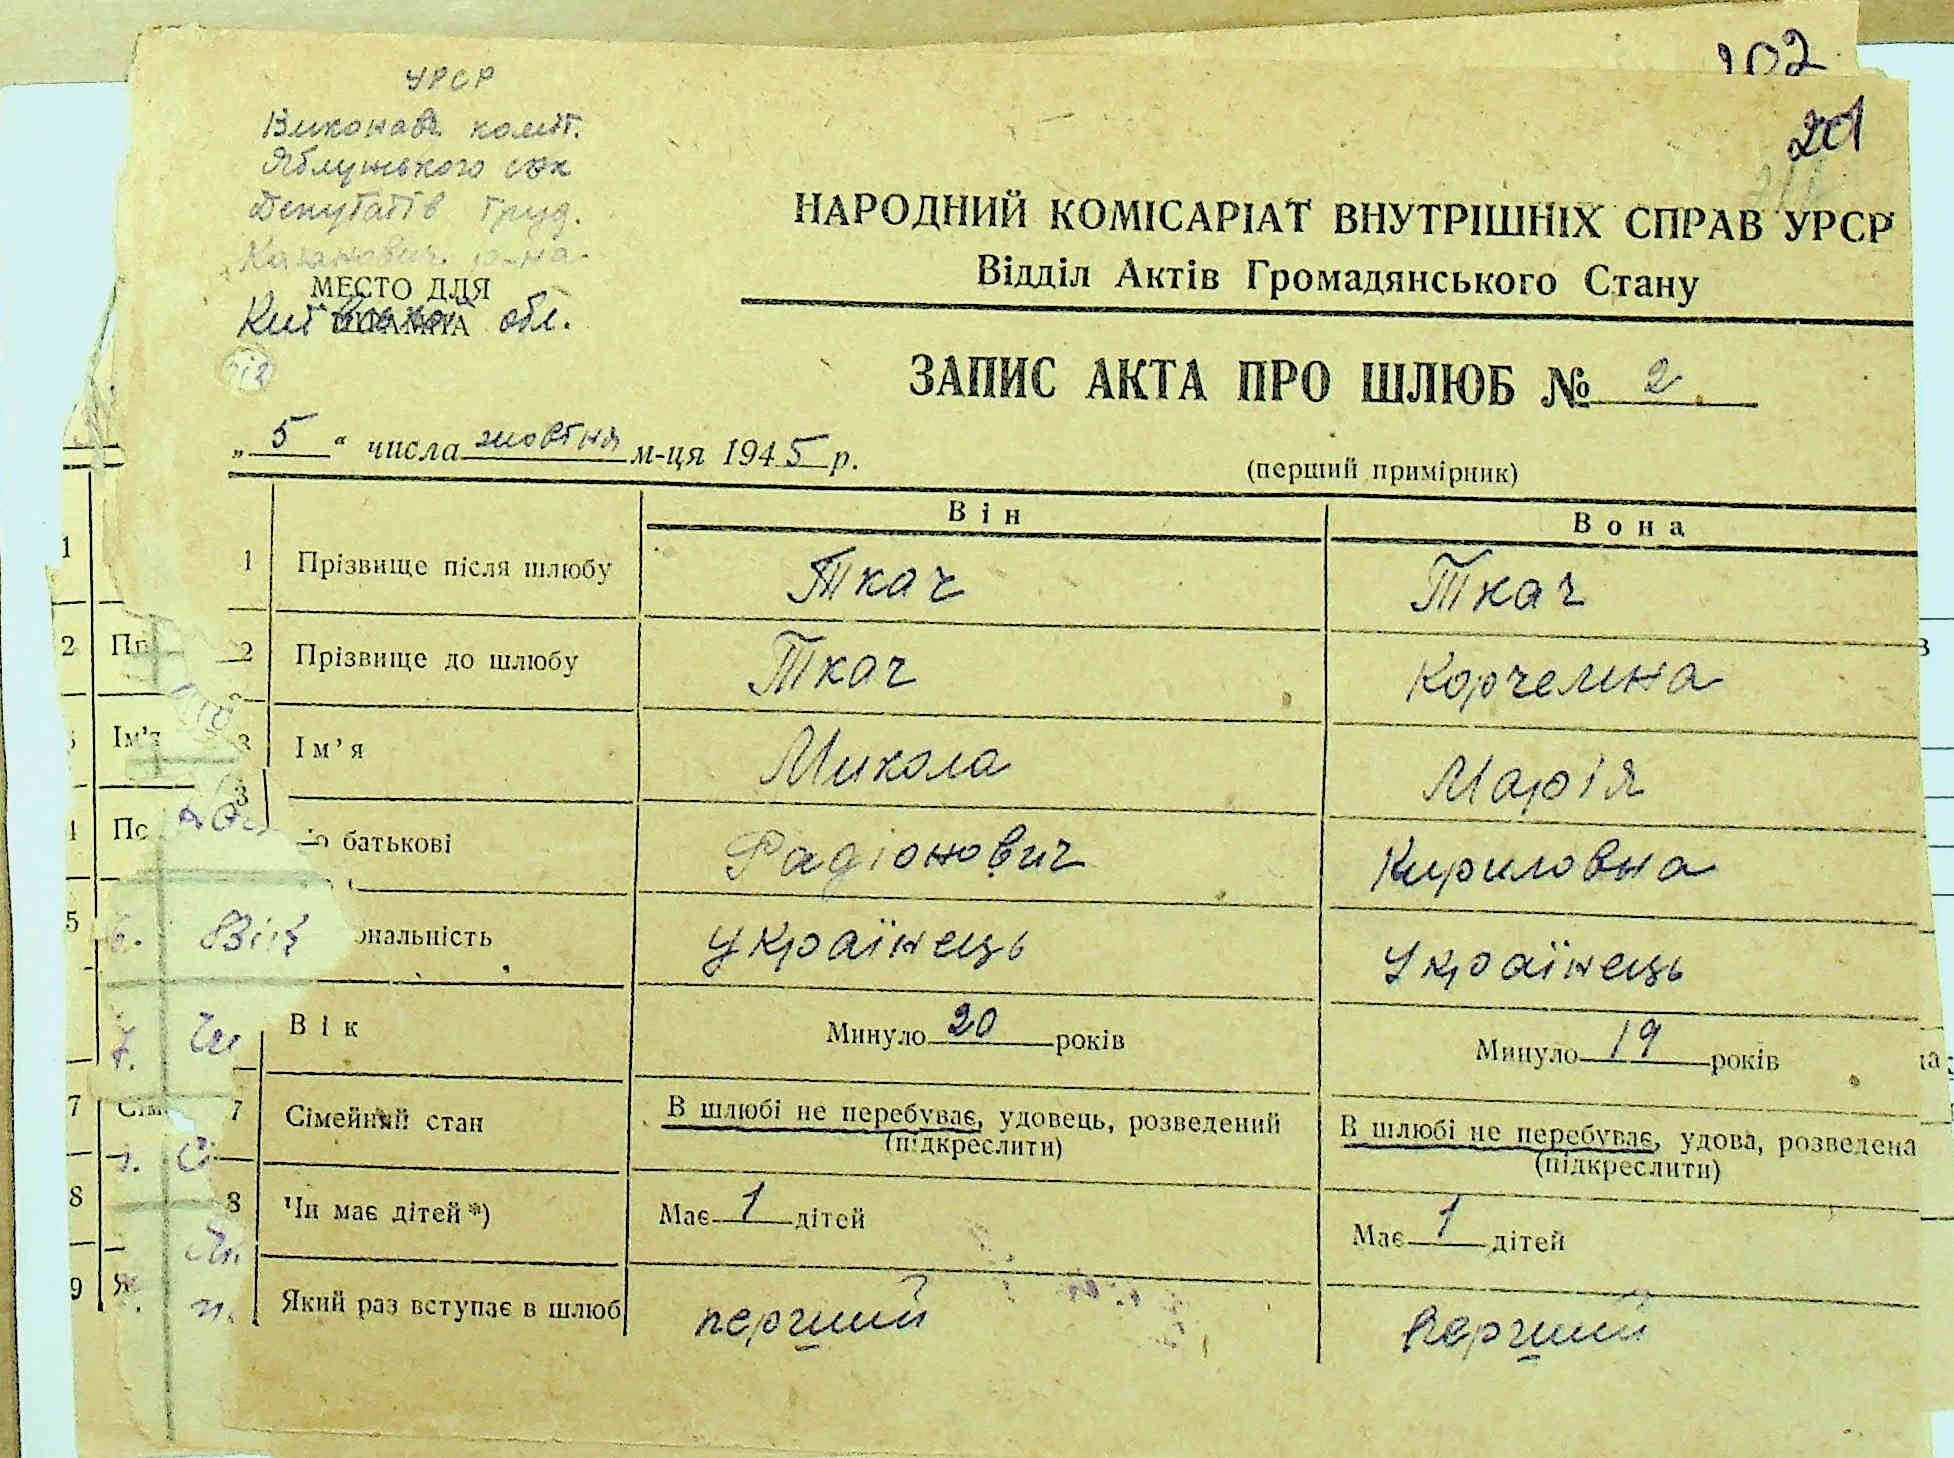 102
201
УРСР
Виконавч. коміт.
Яблунського
Депутатів труд.
Каганович. р-на
МЕСТО ДЛЯ
обл.
НАРОДНИЙ КОМІСАРІАТ ВНУТРІШНІХ СПРАВ УРСР
Відділ Актів Громадянського Стану
ЗАПИС АКТА ПРО ШЛЮБ № 2.
„5“ числа жовтня м-ця 1945 р.
(перший примірник)
Він Вона
1 Прізвище після шлюбу Ткач Ткач
2 Прізвище до шлюбу Ткач Корчемна
3 Ім’я Микола Марія
батькові Радіонович Кириловна
ональність Українець Українець
Вік Минуло 20 років Минуло 19 років
7 Сімейний стан В шлюбі не перебуває, удовець, розведений В шлюбі не перебуває, удова, розведена
(підкреслити) (підкреслити)
8 Чи має дітей*) Має 1 дітей Має 1 дітей
Який раз вступає в шлюб перший перший
1
2
Ім’я
5
6. Вік
7.
7
8
9